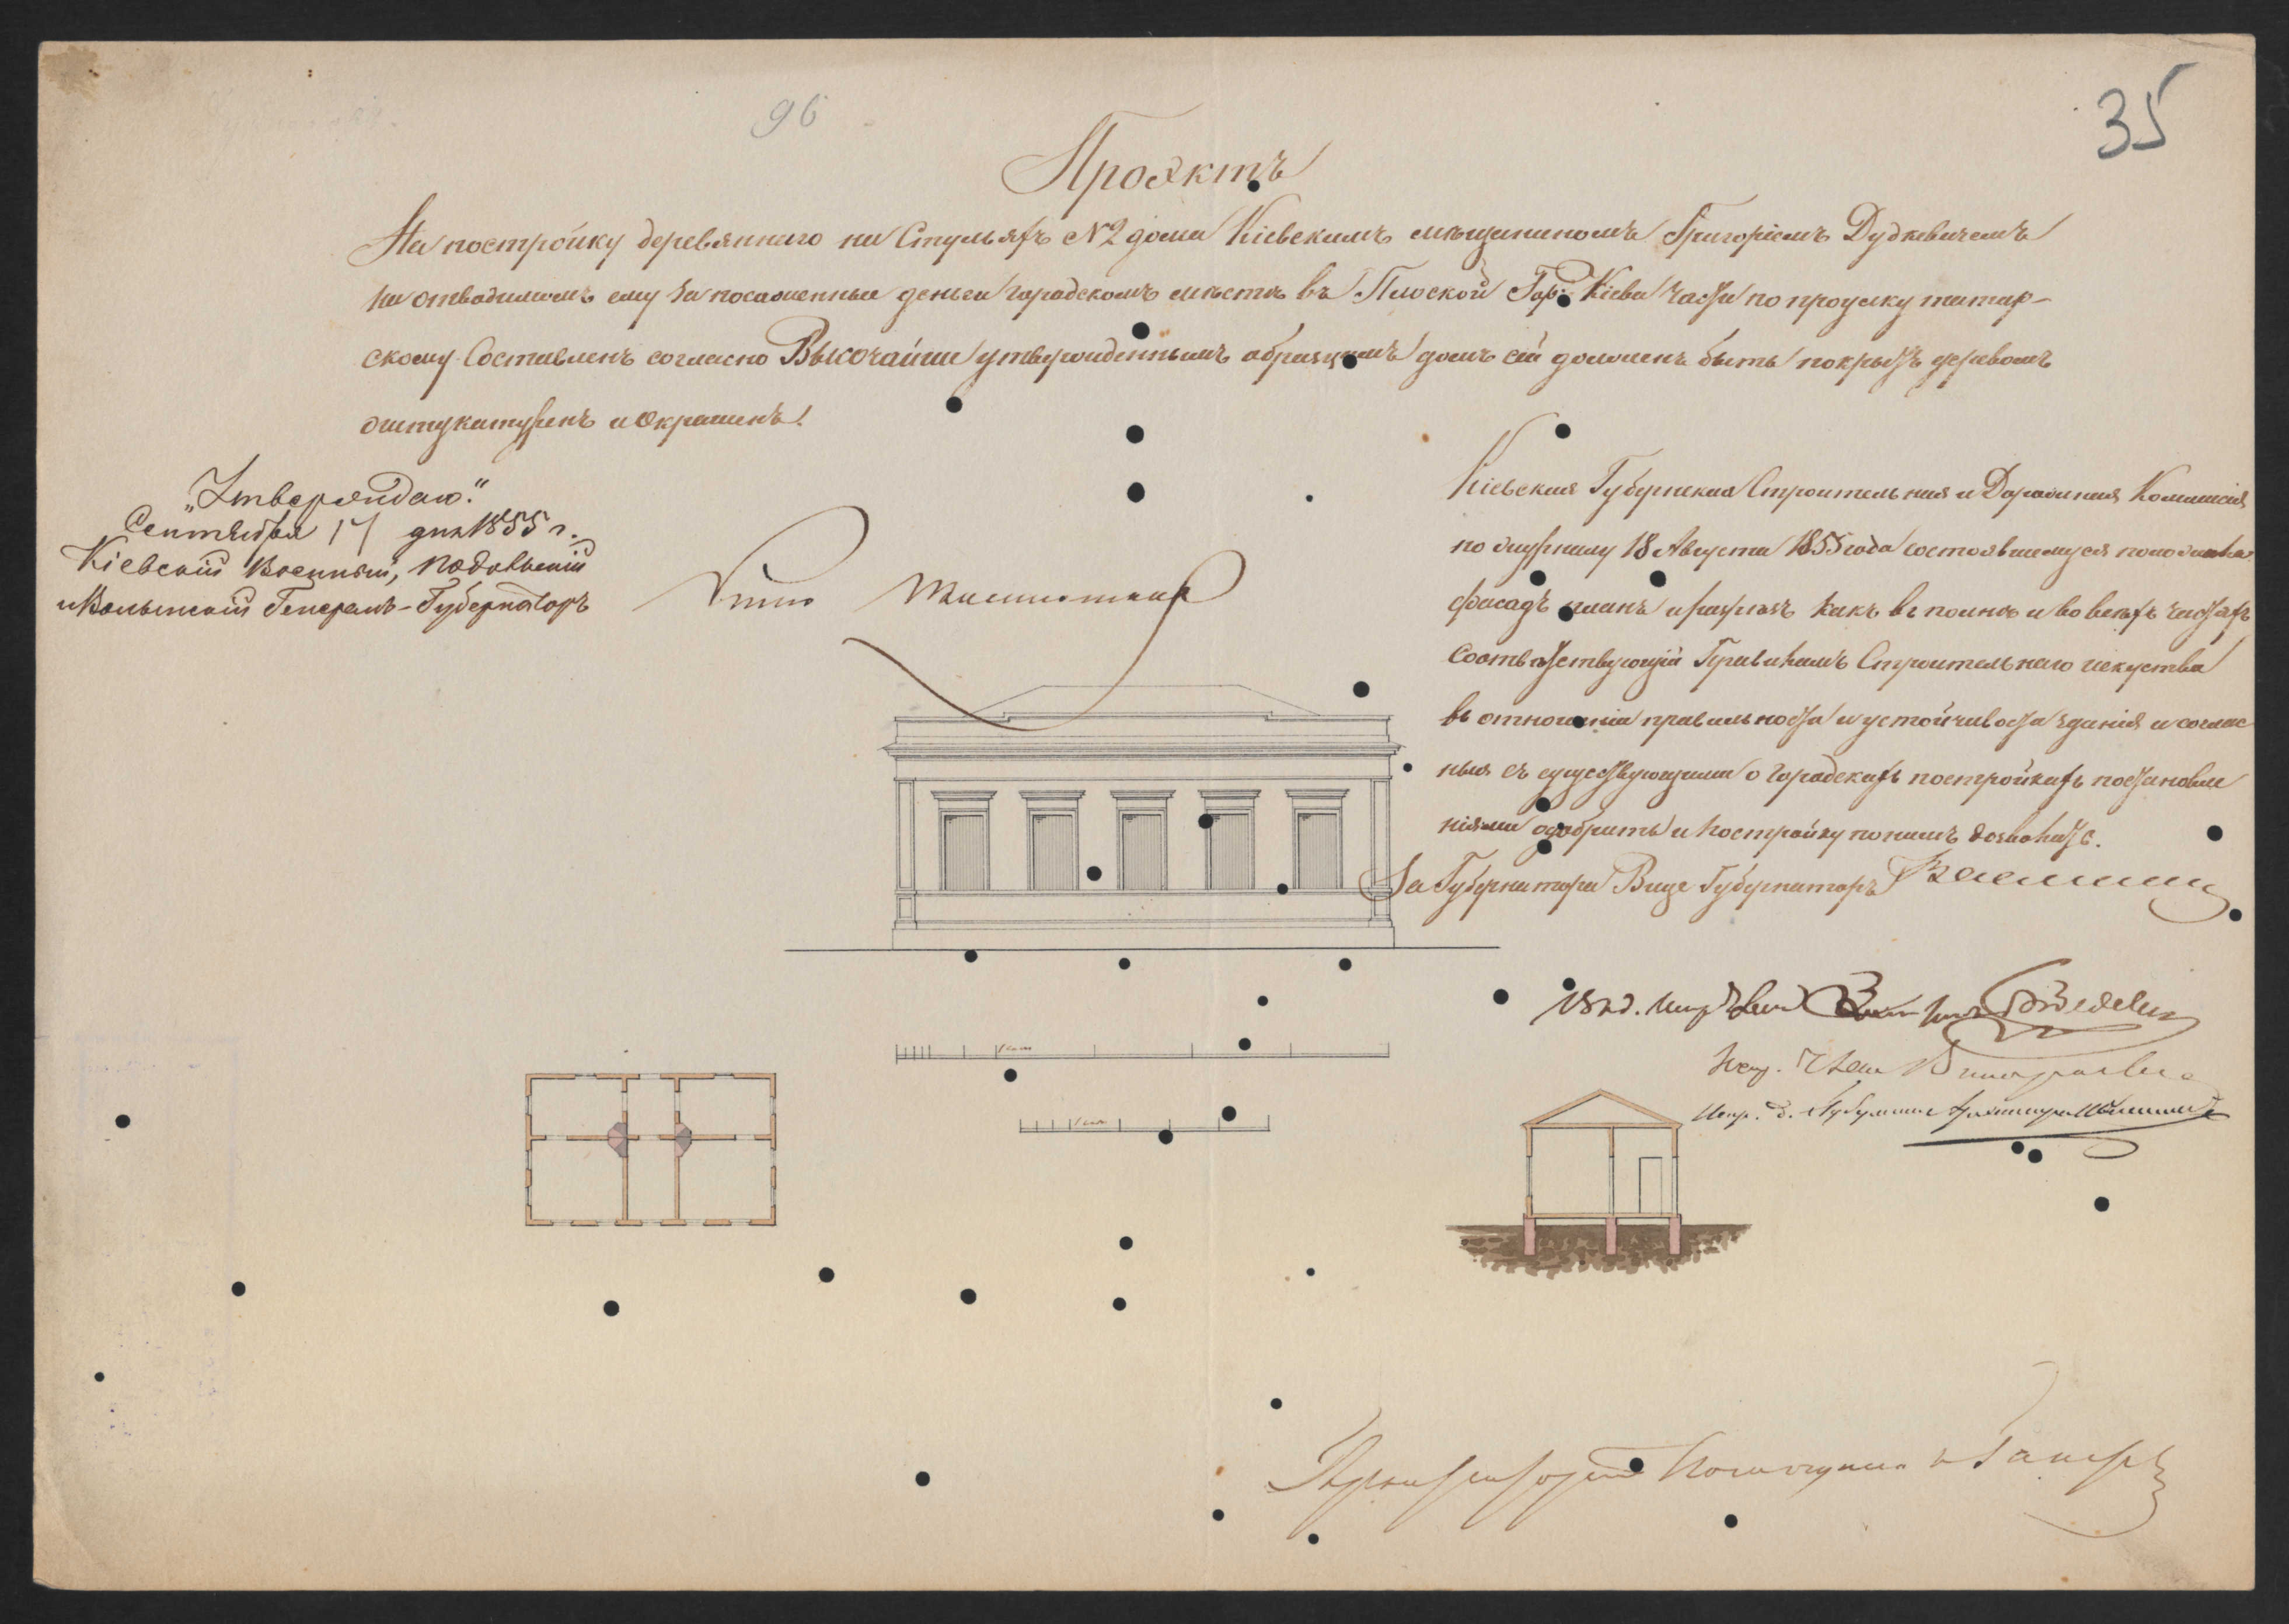 96
35
Проэктъ
На постройку деревяннаго на стульяхъ №2 дома Кіевскимъ мѣщаниномъ Григоріемъ Дудкевичемъ
на отводимомъ ему за посаженныя деньги городскомъ мѣстѣ въ Плоской Гор: Кіева части по проулку татар-
скому. Составленъ согласно Высочайше утвержденнымъ образцамъ домъ сей долженъ быть покрытъ деревомъ
оштукатуренъ и окрашенъ.
„Утверждаю."
Сентября 17 дня 1855 г.
Кіевскій Военный, Подольскій
и Волынскій Генералъ-Губернаторъ
Кіевская Губернская Строительная и Дорожная Коммисія
по журналу 18 Августа 1855 года состоявшемуся положила:
фасадъ планъ и разрѣзъ какъ въ полнѣ и во всѣхъ частяхъ
соотвѣтствующій Правиламъ Строительнаго искуства
въ отношеніи правильности и устойчивости зданія и соглас
ныя съ существующими о городскихъ постройкахъ постановле
ніями одобрить и постройку по нимъ дозволить.
За Губернатора Вице Губернаторъ
1 саж
1 саж